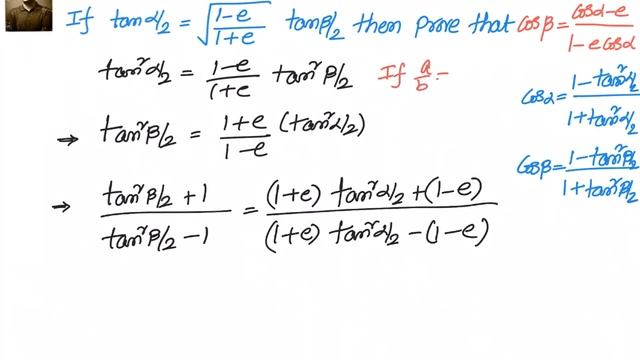 If tan α/2 = √((1-e)/(1+e)) tan β/2 then prove that cos β = (cos α - e)/(1 - e cos α)
tan² α/2 = (1-e)/(1+e) tan² β/2 If a/b =
cos α = (1 - tan² α/2)/(1 + tan² α/2)
⇒ tan² β/2 = (1+e)/(1-e) (tan² α/2)
cos β = (1 - tan² β/2)/(1 + tan² β/2)
⇒ (tan² β/2 + 1)/(tan² β/2 - 1) = ((1+e) tan² α/2 + (1-e))/((1+e) tan² α/2 - (1-e))